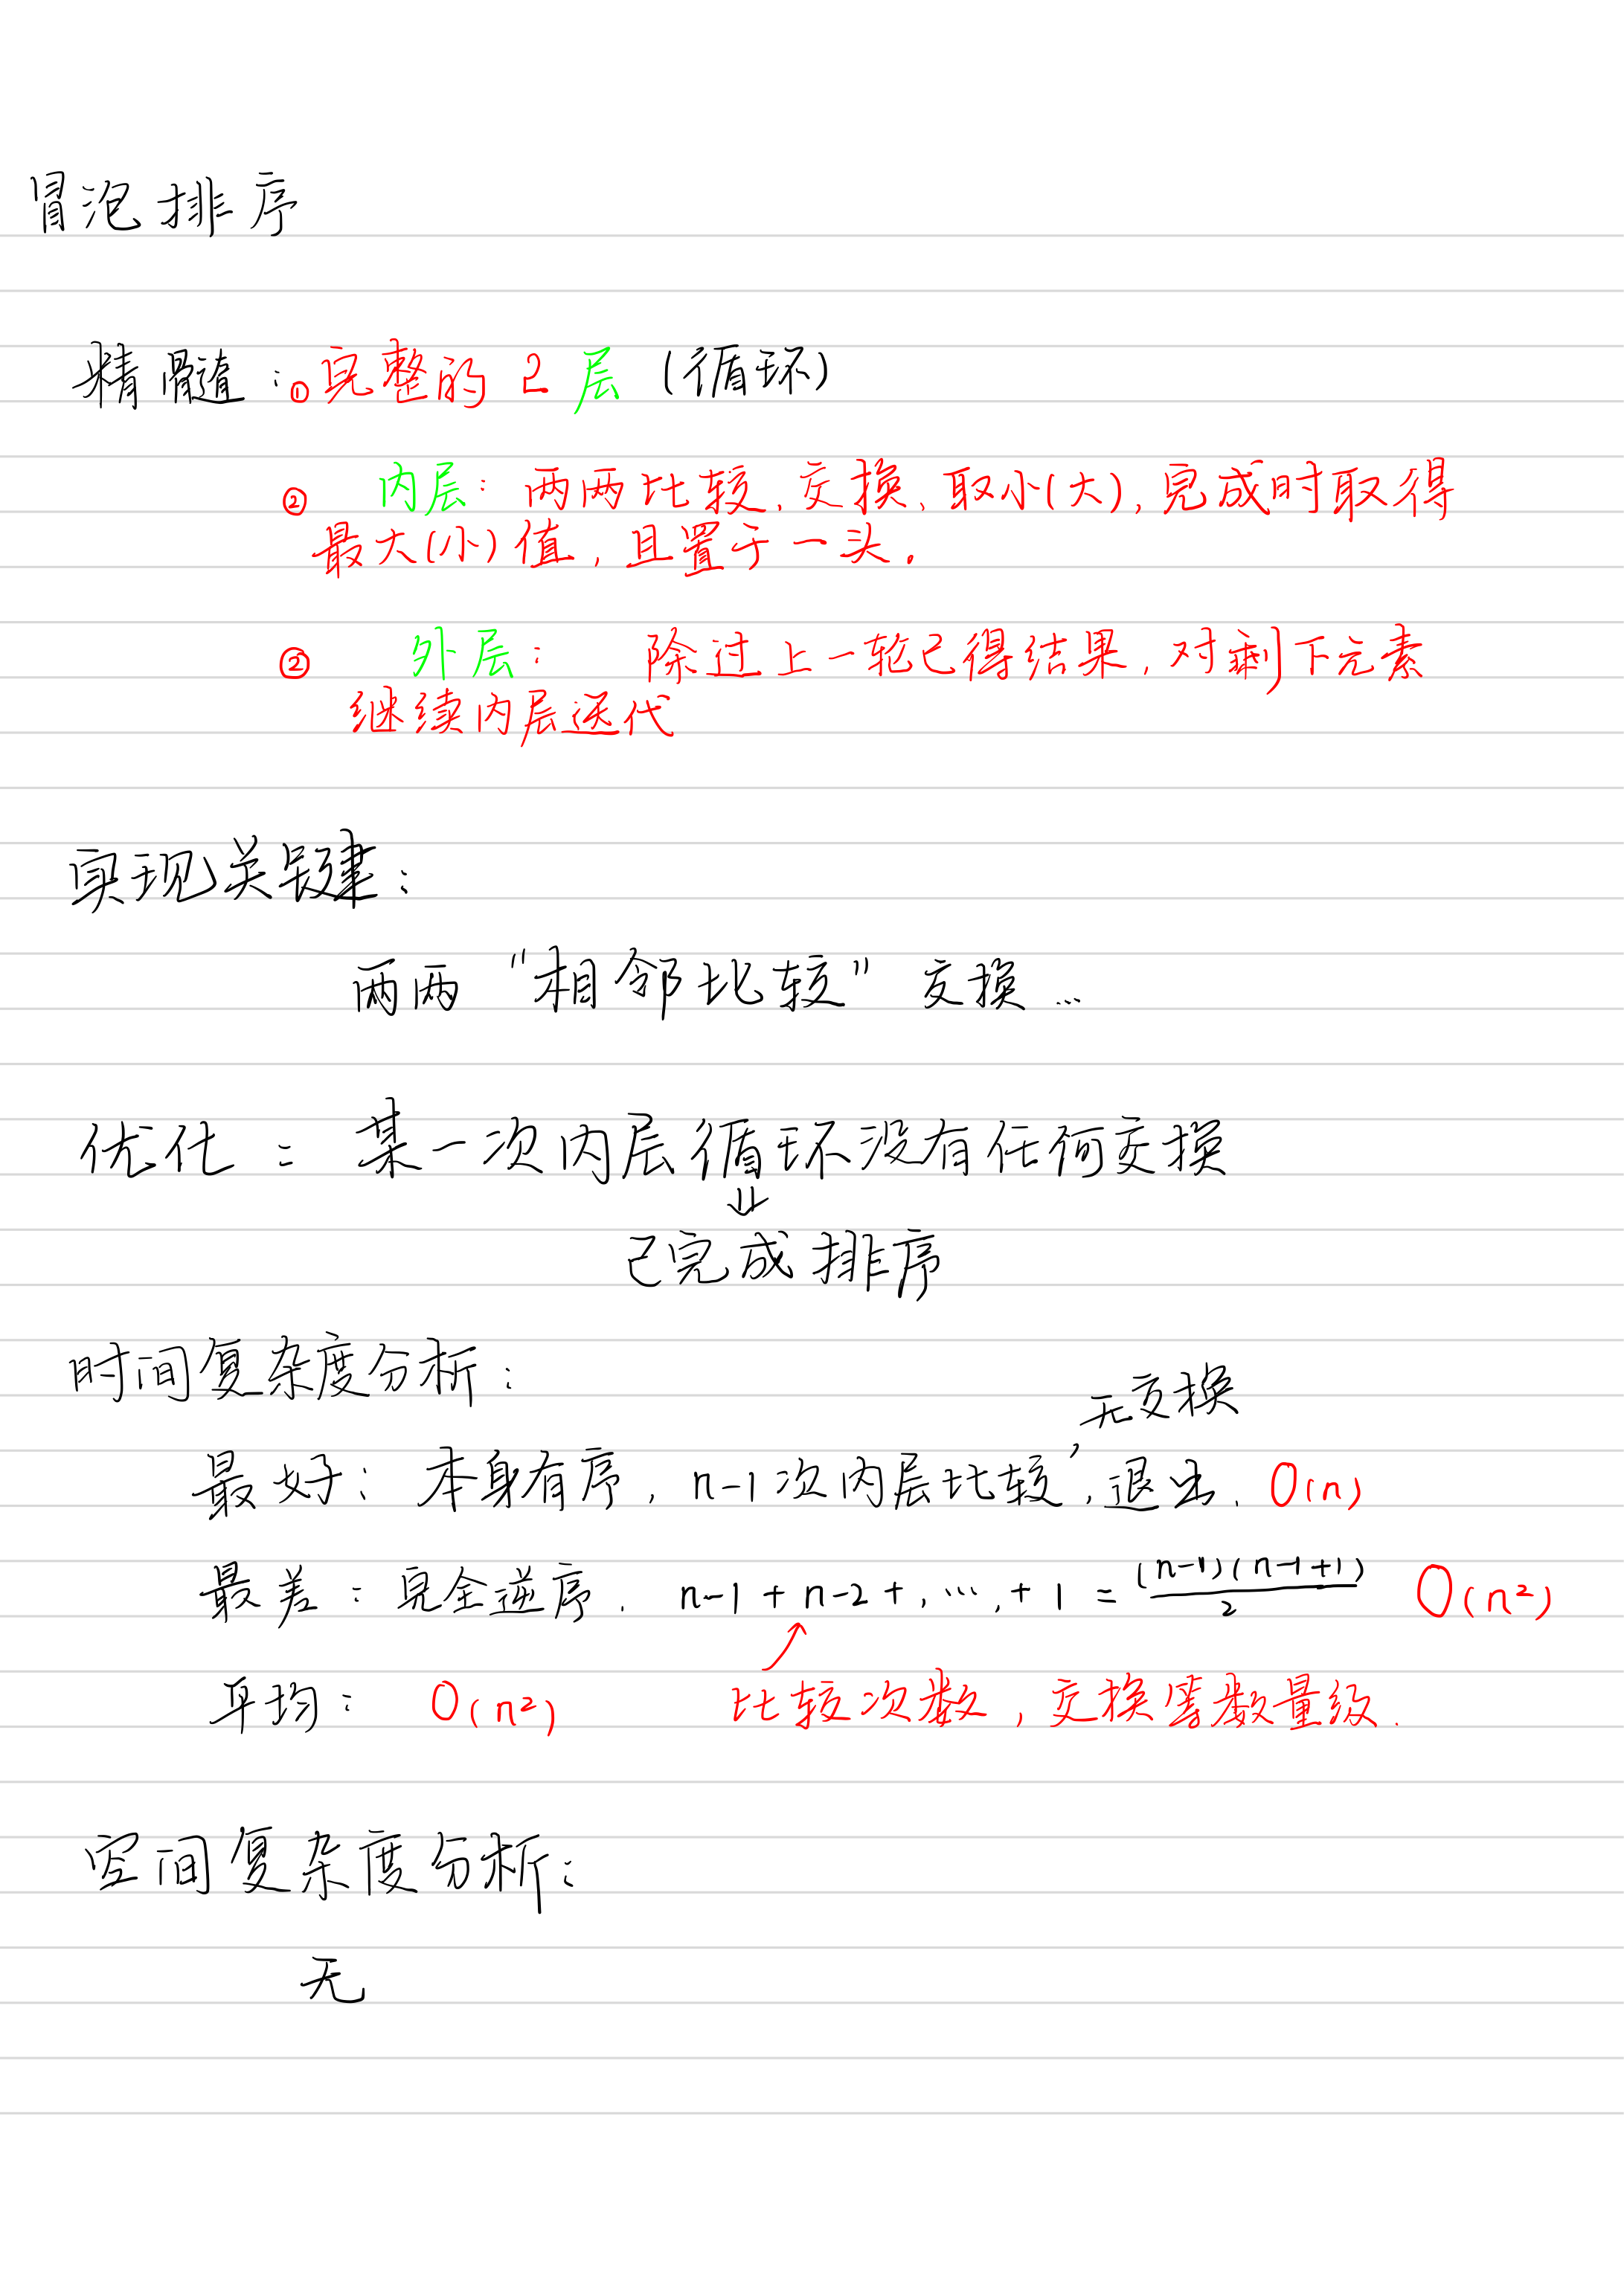 冒泡排序
精髓：①完整的2层（循环）
② 内层：两两比较，交换，取小（大），完成时取得
最大（小）值，且置于一头。
② 外层： 除过上一轮已得结果，对剩下元素
继续内层迭代
实现关键：
两两“相邻比较”交换...
优化： 某一次内层循环没有任何交换
⇓
已完成排序
时间复杂度分析：
无交换
最好：本身有序，n-1次内层比较，退出. O(n)
最差：完全逆序. n-1+n-2+,...,+1 = (n-1)(n-1+1)/2 O(n²)
平均： O(n²) 比较次数，交换等数量级.
空间复杂度分析：
无